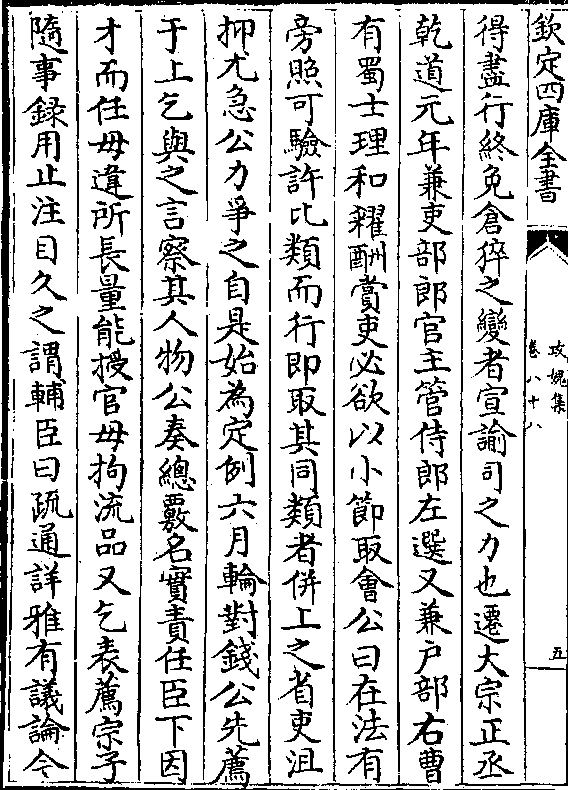 欽定四庫全書
攻媿集
卷八十八
五
得盡行終免倉猝之變者宣諭司之力也遷大宗正丞
乾道元年兼吏部郎官主管侍郎左選又兼戶部右曹
有蜀士理和糴酬賞吏必欲以小節取會公曰在法有
旁照可驗許比類而行即取其同類者併上之省吏沮
抑尤急公力爭之自是始為定例六月輪對錢公先薦
于上乞與之言察其人物公奏總覈名實責任臣下因
才而任毋違所長量能授官毋拘流品又乞表薦宗子
隨事録用上注目久之謂輔臣曰疏通詳雅有議論令